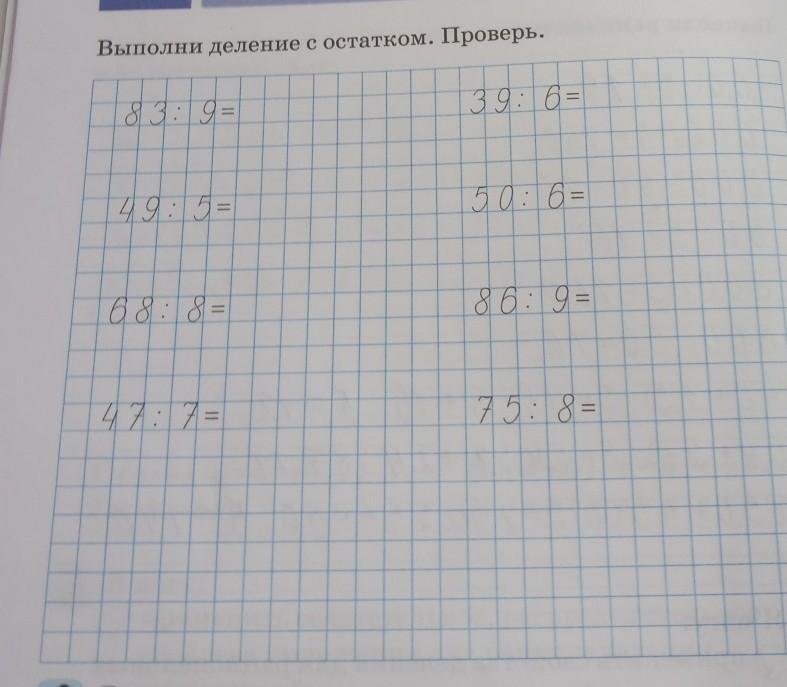 Выполни деление с остатком. Проверь.
83 : 9 =
39 : 6 =
49 : 5 =
50 : 6 =
68 : 8 =
86 : 9 =
47 : 7 =
75 : 8 =